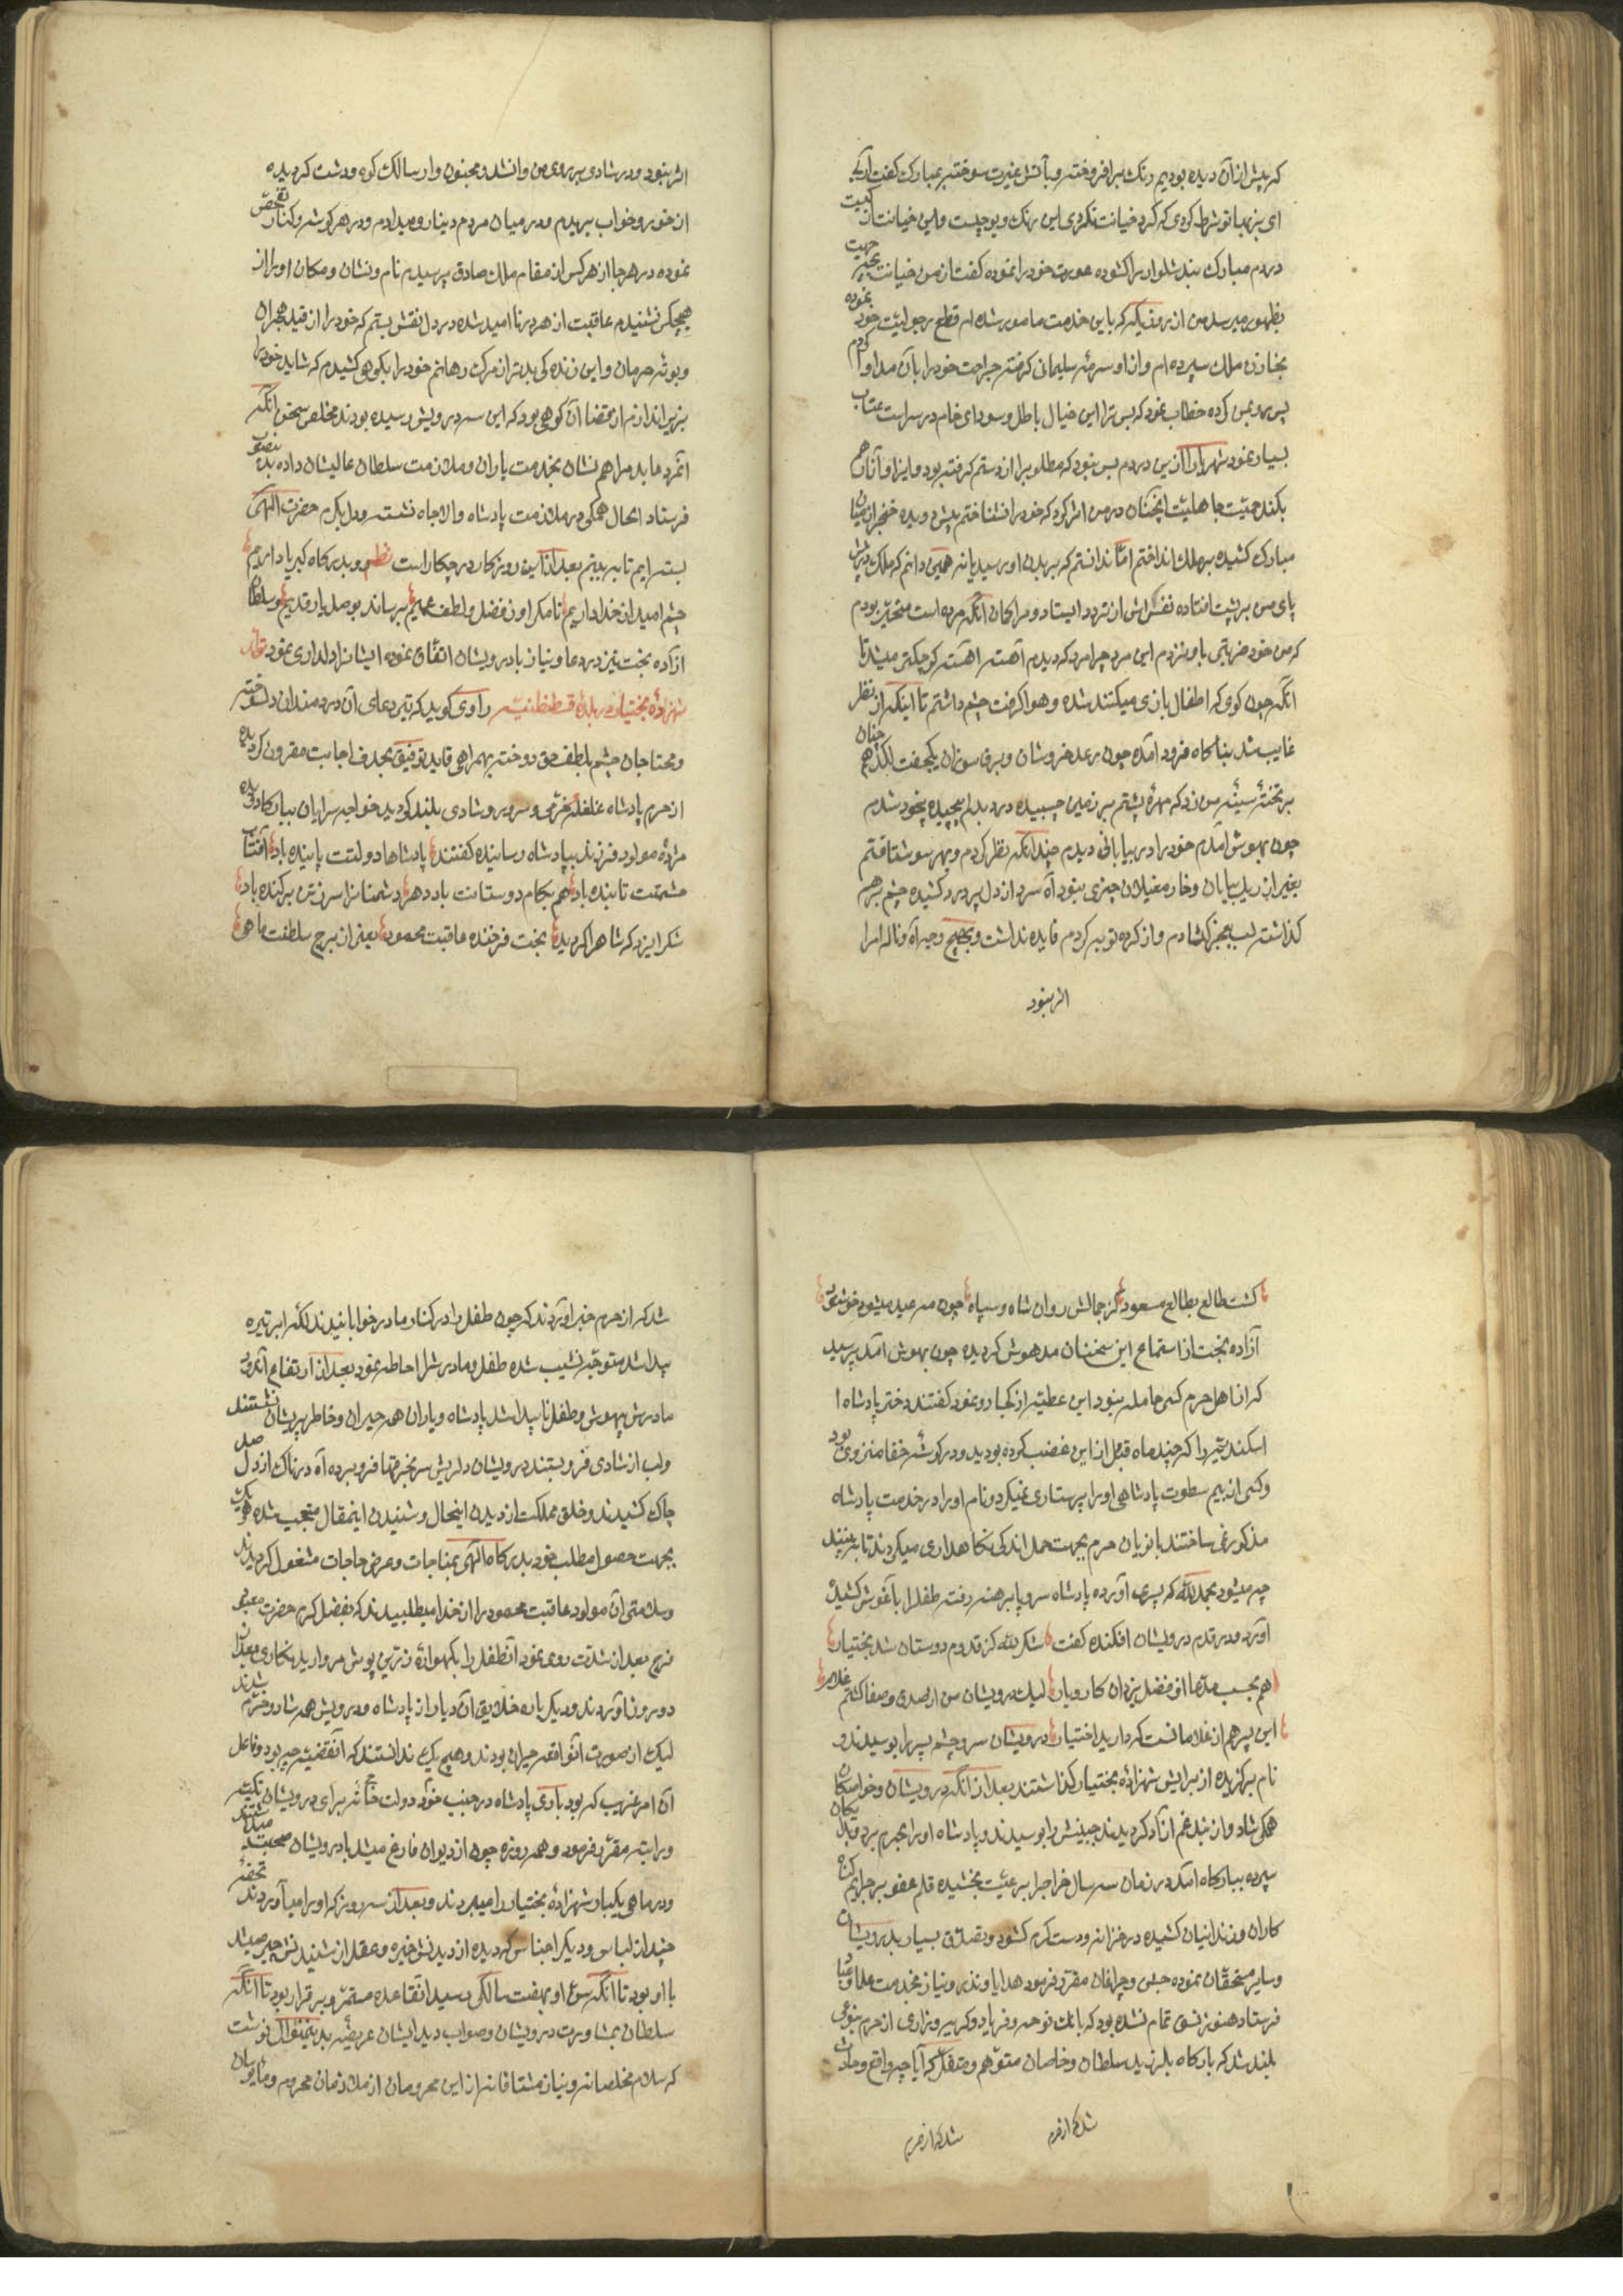 که پیش ازان دیده بودیم رنگ برافروخته و بآتش غیرت سوخته بمبارک گفت
ای با تو شرط کردی که کرد خیانت نکردی این رنگ و بو چیست واین خیانت از کیست
دردم مبارک بند شلوار را کشوده عورت خود را نموده گفت از من خیانت بچه جهت
بظهور میرسد من از روزیکه باین خدمت مامور شده ام قطع رجولیت خود نموده
بخازن ملک سپرده ام وازاو سرمهٔ سلیمانی گرفته جراحت خود را بآن مداوا کردم
پس رو بمن کرده خطاب نمود که پس ترا این خیال باطل و سودای خام در سراست عتاب
بسیار نمود شهریارا ازین دردم بس نبود که مطلوبرا از دستم گرفته بود و ایزا و آزار هم
بکند حمیت جاهلیت آنچنان درمن اثر کرد که خود را نشناختم پیش دویده خنجر از میان
مبارک کشیده بر ملک انداختم امّا ندانستم که ببدن او رسید یا نه همین دانم که ملک در پیش
پای من بر پشت افتاده نفسش از تردد ایستاد و مرا گمان آنکه مرده است متحیّر بودم
که من خود ضربتی باو نزدم این مرد چرا مرد که دیدم آهسته آهسته کوچکتر میشد تا
آنکه چون گوی که اطفال بازی میکنند شده و هوا گرفت چشم داشتم تا اینکه از نظر
غایب شد بناگاه فرود آمده چون رعد خروشان و برق سوزان یکجفت لگد هم چنان
بر تختهٔ سینهٔ من زد که مهرهٔ پشتم بر زمین چسبیده درد بدلم پیچیده بیخود شدم
چون بهوش آمدم خود را در بیابانی دیدم چندانکه نظر کردم و بهر سو شتافتم
بغیر از ریگ بیابان و خار مغیلان چیزی نبود آه سرد از دل پر درد کشیده چشم برهم
گذاشته لب بعجز گشادم و از کرده توبه کردم فایده نداشت و بهیچ وجه آه و ناله امرا
اثر نبود
اثر نبود و در شادی بر روی من وا نشد و مجنون وار سالک کوه و دشت گردیده
از خور و خواب بریدم و در میان مردم دینار و میدادم و در هر گوشه و کنار تفحّص
نموده در هر جا از هر کس از مقام ملک صادق پرسیدم نام و نشان و مکان او را از
هیچکس نشنیدم عاقبت از همه در ناامید شده در دل نقش بستم که خود را از قید هجران
و بوته حرمان و این زنده گی بدتر از مرگ رهانم خود را بکوهی کشیدم که شاید خود را
بزیر اندازم از قضا آن کوهی بود که این سه درویش رسیده بودند مخلص سخن آنکه
آنمرد عابد مرا هم نشان بخدمت یاران و ملازمت سلطان عالیشان داده بدینصوب
فرستاد الحال همگی در ملازمت پادشاه والاجاه نشسته و دل بکرم حضرت الهی
بسته ایم تا ببینیم بعد ازاین روزگار در چکار است نظم و بدرگاه کبریا داریم
چشم امید از خدا داریم تا مگر او ز فضل و لطف عمیم برساند بوصل یار قدیم و سلطان
آزاده بخت نیز در دعا و نیاز با درویشان اتفاق نموده ایشانرا دلداری نمود تولد
شهزادهٔ بختیار در بلدهٔ قسطنطنیه راوی گوید که تیر دعای آن دردمندان دلسوخته
و محتاجان چشم بلطف حق دوخته بهمراهی قاید توفیق بهدف اجابت مقرون گردیده
از حرم پادشاه غلغلهٔ خرّمی و سرور و شادی بلند گردید خواجه سرایان ببارگاه دویده
مژدهٔ مولود فرزند بپادشاه رسانیده گفتند پادشاها دولتت پاینده باد آفتاب
حشمتت تابنده باد هم بکام دوستانت باد دهر دشمنانرا سر ز تن برکنده باد
شکر ایزد که شاهرا گردید بخت فرخنده عاقبت محمود یعنی از برج سلطنت ماهی
گشت طالع بطالع مسعود کز جمالش روان شاه و سپاه چون مه عید میشود خوشنود
آزاده بخت از استماع این سخنان مدهوش گردیده چون بهوش آمد پرسید
که از اهل حرم کسی حامله نبود این عطیّه از کجا رو نمود گفتند دختر پادشاه
اسکندریّه را که چند ماه قبل ازاین غضب کرده بودید و در گوشهٔ خفا منزوی بود
و کسی از بیم سطوت پادشاهی او را پرستاری نمیکرد و نام او را در خدمت پادشاه
مذکور نمی ساختند بانویان حرم بجهت حمل اندکی نگاهداری میکردند تا ببینند
چه میشود بحمدلله که پسری آورده پادشاه سر و پا برهنه رفته طفلرا بآغوش کشیده
آورد و در قدم درویشان افکنده گفت شکر لله کز قدوم دوستان شد بختیار
هم بحسب مدعا از فضل یزدان کار و بار لیک درویشان من از صدق و صفا گشتم غلام
این پسر هم از غلامانست گر دارید اختیار درویشان سر و چشم پسر را بوسیدند و
نام برگزیده از برایش شهزادهٔ بختیار گذاشتند بعد ازانکه درویشان و خواصکان
همگی شاد و از بند غم آزاد گردیدند جبینش را بوسیدند و پادشاه او را بحرم برد و
سپرده ببارگاه آمد در زمان سه سال خراجرا برعیّت بخشیده قلم عفو بر جرایم گناه
کاران و زندانیان کشیده در خزانه و دست کرم گشود و تصدّق بسیار بدرویشان
و سایر مستحقّان نموده جشن و چراغان مقرّر فرمود هدایا و نذر و نیاز بخدمت علما و
فرستاد هنوز نسق تمام نشده بود که بانک نوحه و فریاد و گریه و زاری از حرم بنوعی
بلند شد که بارگاه بلرزید سلطان و خاصان متوّهم و متفکّر که آیا چه واقع و حادث
شد که از حرم
شد که از حرم
شد که از حرم خبر آوردند که چون طفل را در کنار مادر خوابانیدند لکّه ابر تیره
پیدا شد متوجّه نشیب شده طفل و مادرش را احاطه نمود بعد از ارتفاع آن
مادرش بیهوش و طفل ناپیدا شد پادشاه و یاران همه حیران و خاطر پریشان نشستند
و لب از شادی فرو بستند درویشان دلریش سر بخرقها فرو برده آه دردناک از دل صد
چاک کشیدند و خلق مملکت از دیدن اینحال و شنیدن اینمقال متعجب شده هریک
بجهت حصول مطلب خود بدرگاه الهی بمناجات و عرض حاجات مشغول گردیدند
و سلامتی آن مولود عاقبت محمود را از خدا میطلبیدند که بفضل کرم حضرت معبود
فرج بعد از شدّت روی نمود آنطفل را بگهوارهٔ زرّین پوش مروارید نگاری بعد از
دو روز آوردند و دیگر باره خلایق آن دیار از پادشاه و درویش همه شاد و خرّم شدند
لیک از صورت آنواقعه حیران بودند و هیچ یک ندانستند که آنقضیّه چه بود و فاعل
آن امر غریب که بود باری پادشاه در جنب خود دولت خانه برای درویشان
ورایتبه مقرّر فرمود و همه روزه چون از دیوان فارغ میشد با درویشان صحبت میداشت
و در ماهی یکبار شهزادهٔ بختیار را میبردند و بعد از سه روز که او را میآوردند تحفهٔ
چند از لباس و دیگر اجناس که دیده از دیدنش خیره و عقل از شنیدنش حیر میشد
با او بود تا آنکه سنّ او بهفت سالگی رسید آنقاعده مستمرّ و برقرار بود تا آنکه
سلطان بمشاورت درویشان و صواب دید ایشان عریضهٔ بدینمنوال نوشت
که سلام مخلصانه و نیاز مشتاقانه از این محرومان از ملازمان محروم و مأیوسان